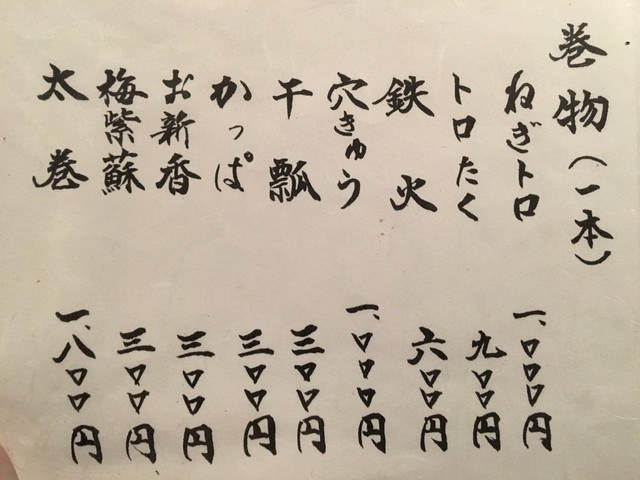 巻物(一本)
ねぎトロ 一、〇〇〇円
トロたく 九〇〇円
鉄火 六〇〇円
穴きゅう 一、〇〇〇円
干瓢 三〇〇円
かっぱ 三〇〇円
お新香 三〇〇円
梅紫蘇 三〇〇円
太巻 一、八〇〇円